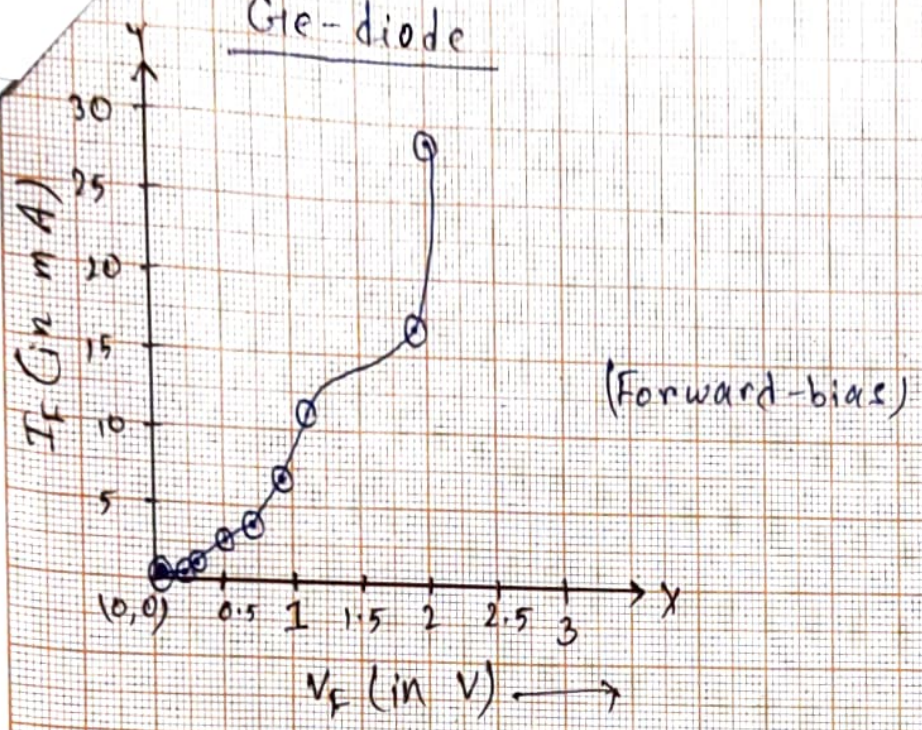 Ge-diode
Y
30
25
20
15
10
5
I_F (in mA)
(Forward-bias)
(0,0) 0.5 1 1.5 2 2.5 3
X
V_F (in V)